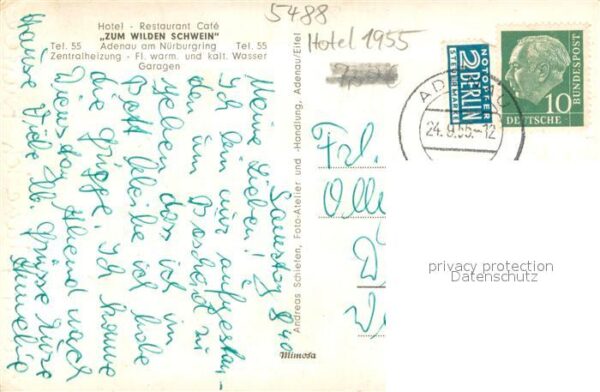 Hotel - Restaurant Café
„ZUM WILDEN SCHWEIN"
Tel. 55 Adenau am Nürburgring Tel. 55
Zentralheizung - Fl. warm. und kalt. Wasser
Garagen
5488
Hotel 1955
NOTOPFER
2 BERLIN
STEUERMARKE
DEUTSCHE
BUNDESPOST
10
ADENAU
24.9.55.-12
Samstag 8 40
Meine Lieben!
Ich bin nur aufgestan-
den um Bescheid zu
geben dass ich im
Bett bleibe ich habe
die Grippe. Ich komme
Dienstag Abend nach
Hause Viele lb Grüsse Eure
Frl.
Andreas Schiefen, Foto-Atelier und -Handlung, Adenau/Eifel
Mimosa
privacy protection
Datenschutz